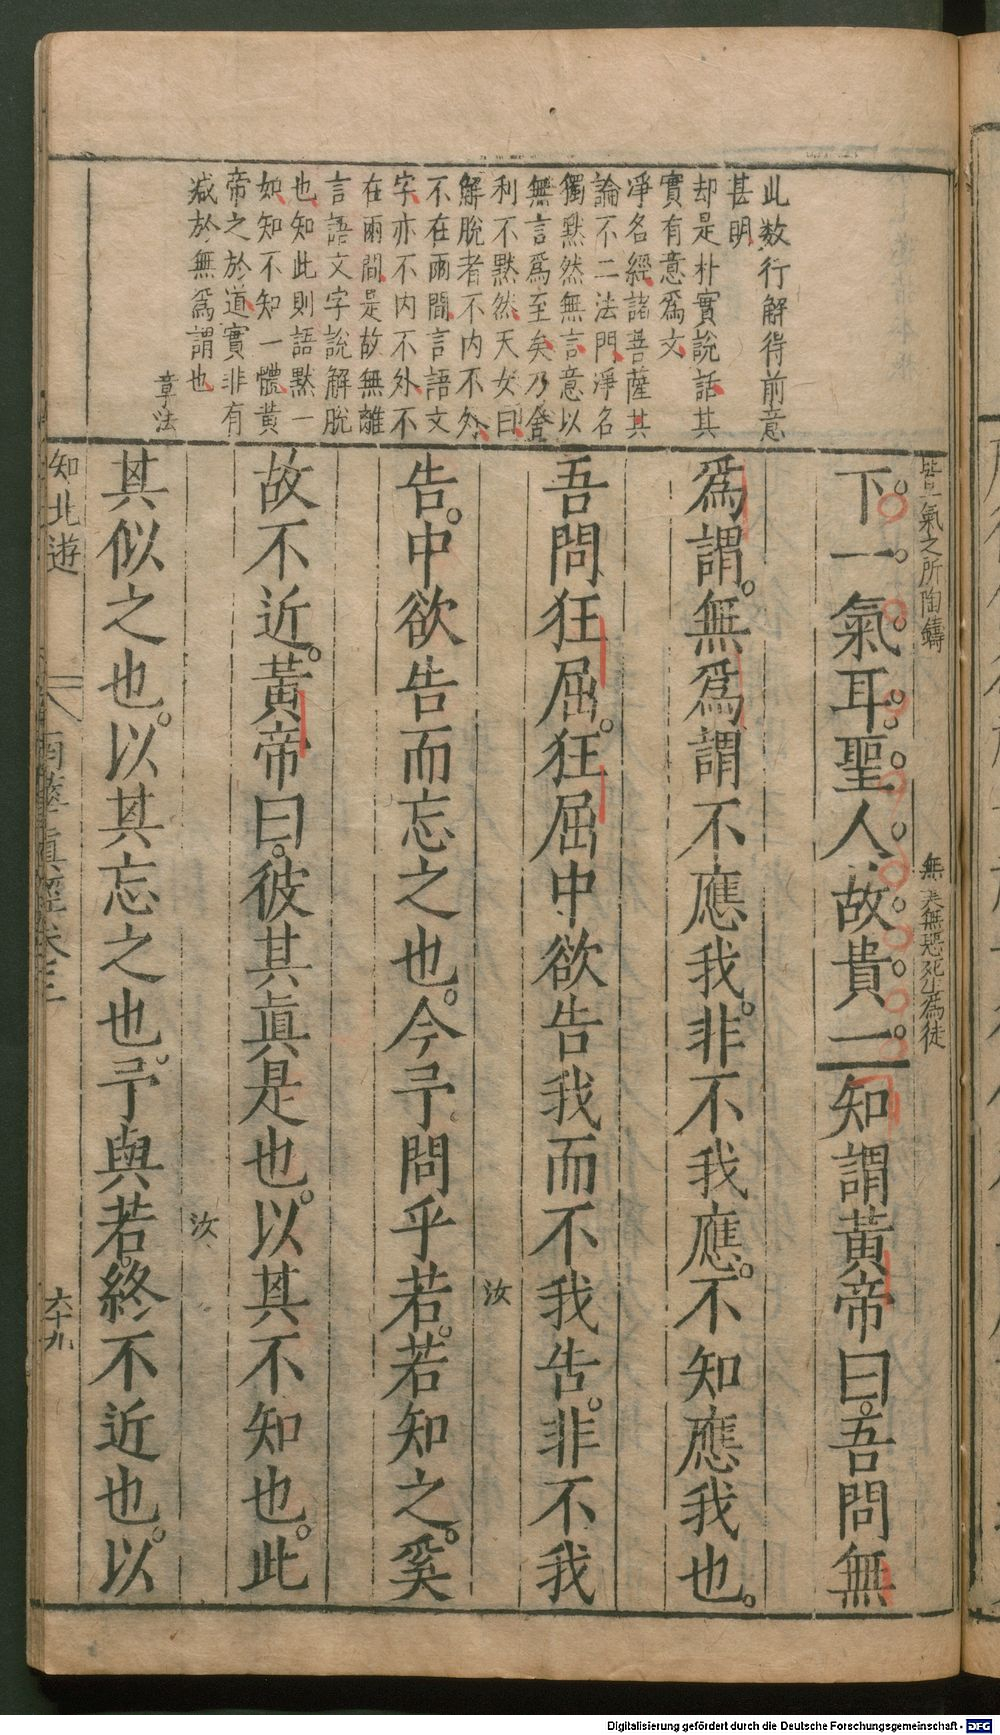 此數行解得前意
甚明
却是朴實說話其
實有意爲文
淨名經諸菩薩其
論不二法門淨名
獨默然無言意以
無言爲至矣乃舍
利不默然天女曰
解脫者不內不外
不在兩間言語文
字亦不內不外不
在兩間是故無離
言語文字說解脫
也知此則語默一
如知不知一體黃
帝之於道實非有
減於無爲謂也
章法
皆一氣之所陶鑄
無美無惡死生爲徒
下一氣耳聖人故貴一知謂黃帝曰吾問無
爲謂無爲謂不應我非不我應不知應我也
吾問狂屈狂屈中欲告我而不我告非不我
汝
告中欲告而忘之也今予問乎若若知之奚
故不近黃帝曰彼其眞是也以其不知也此
汝
其似之也以其忘之也予與若終不近也以
知北遊
南華眞經卷三
六十九
Digitalisierung gefördert durch die Deutsche Forschungsgemeinschaft - DFG